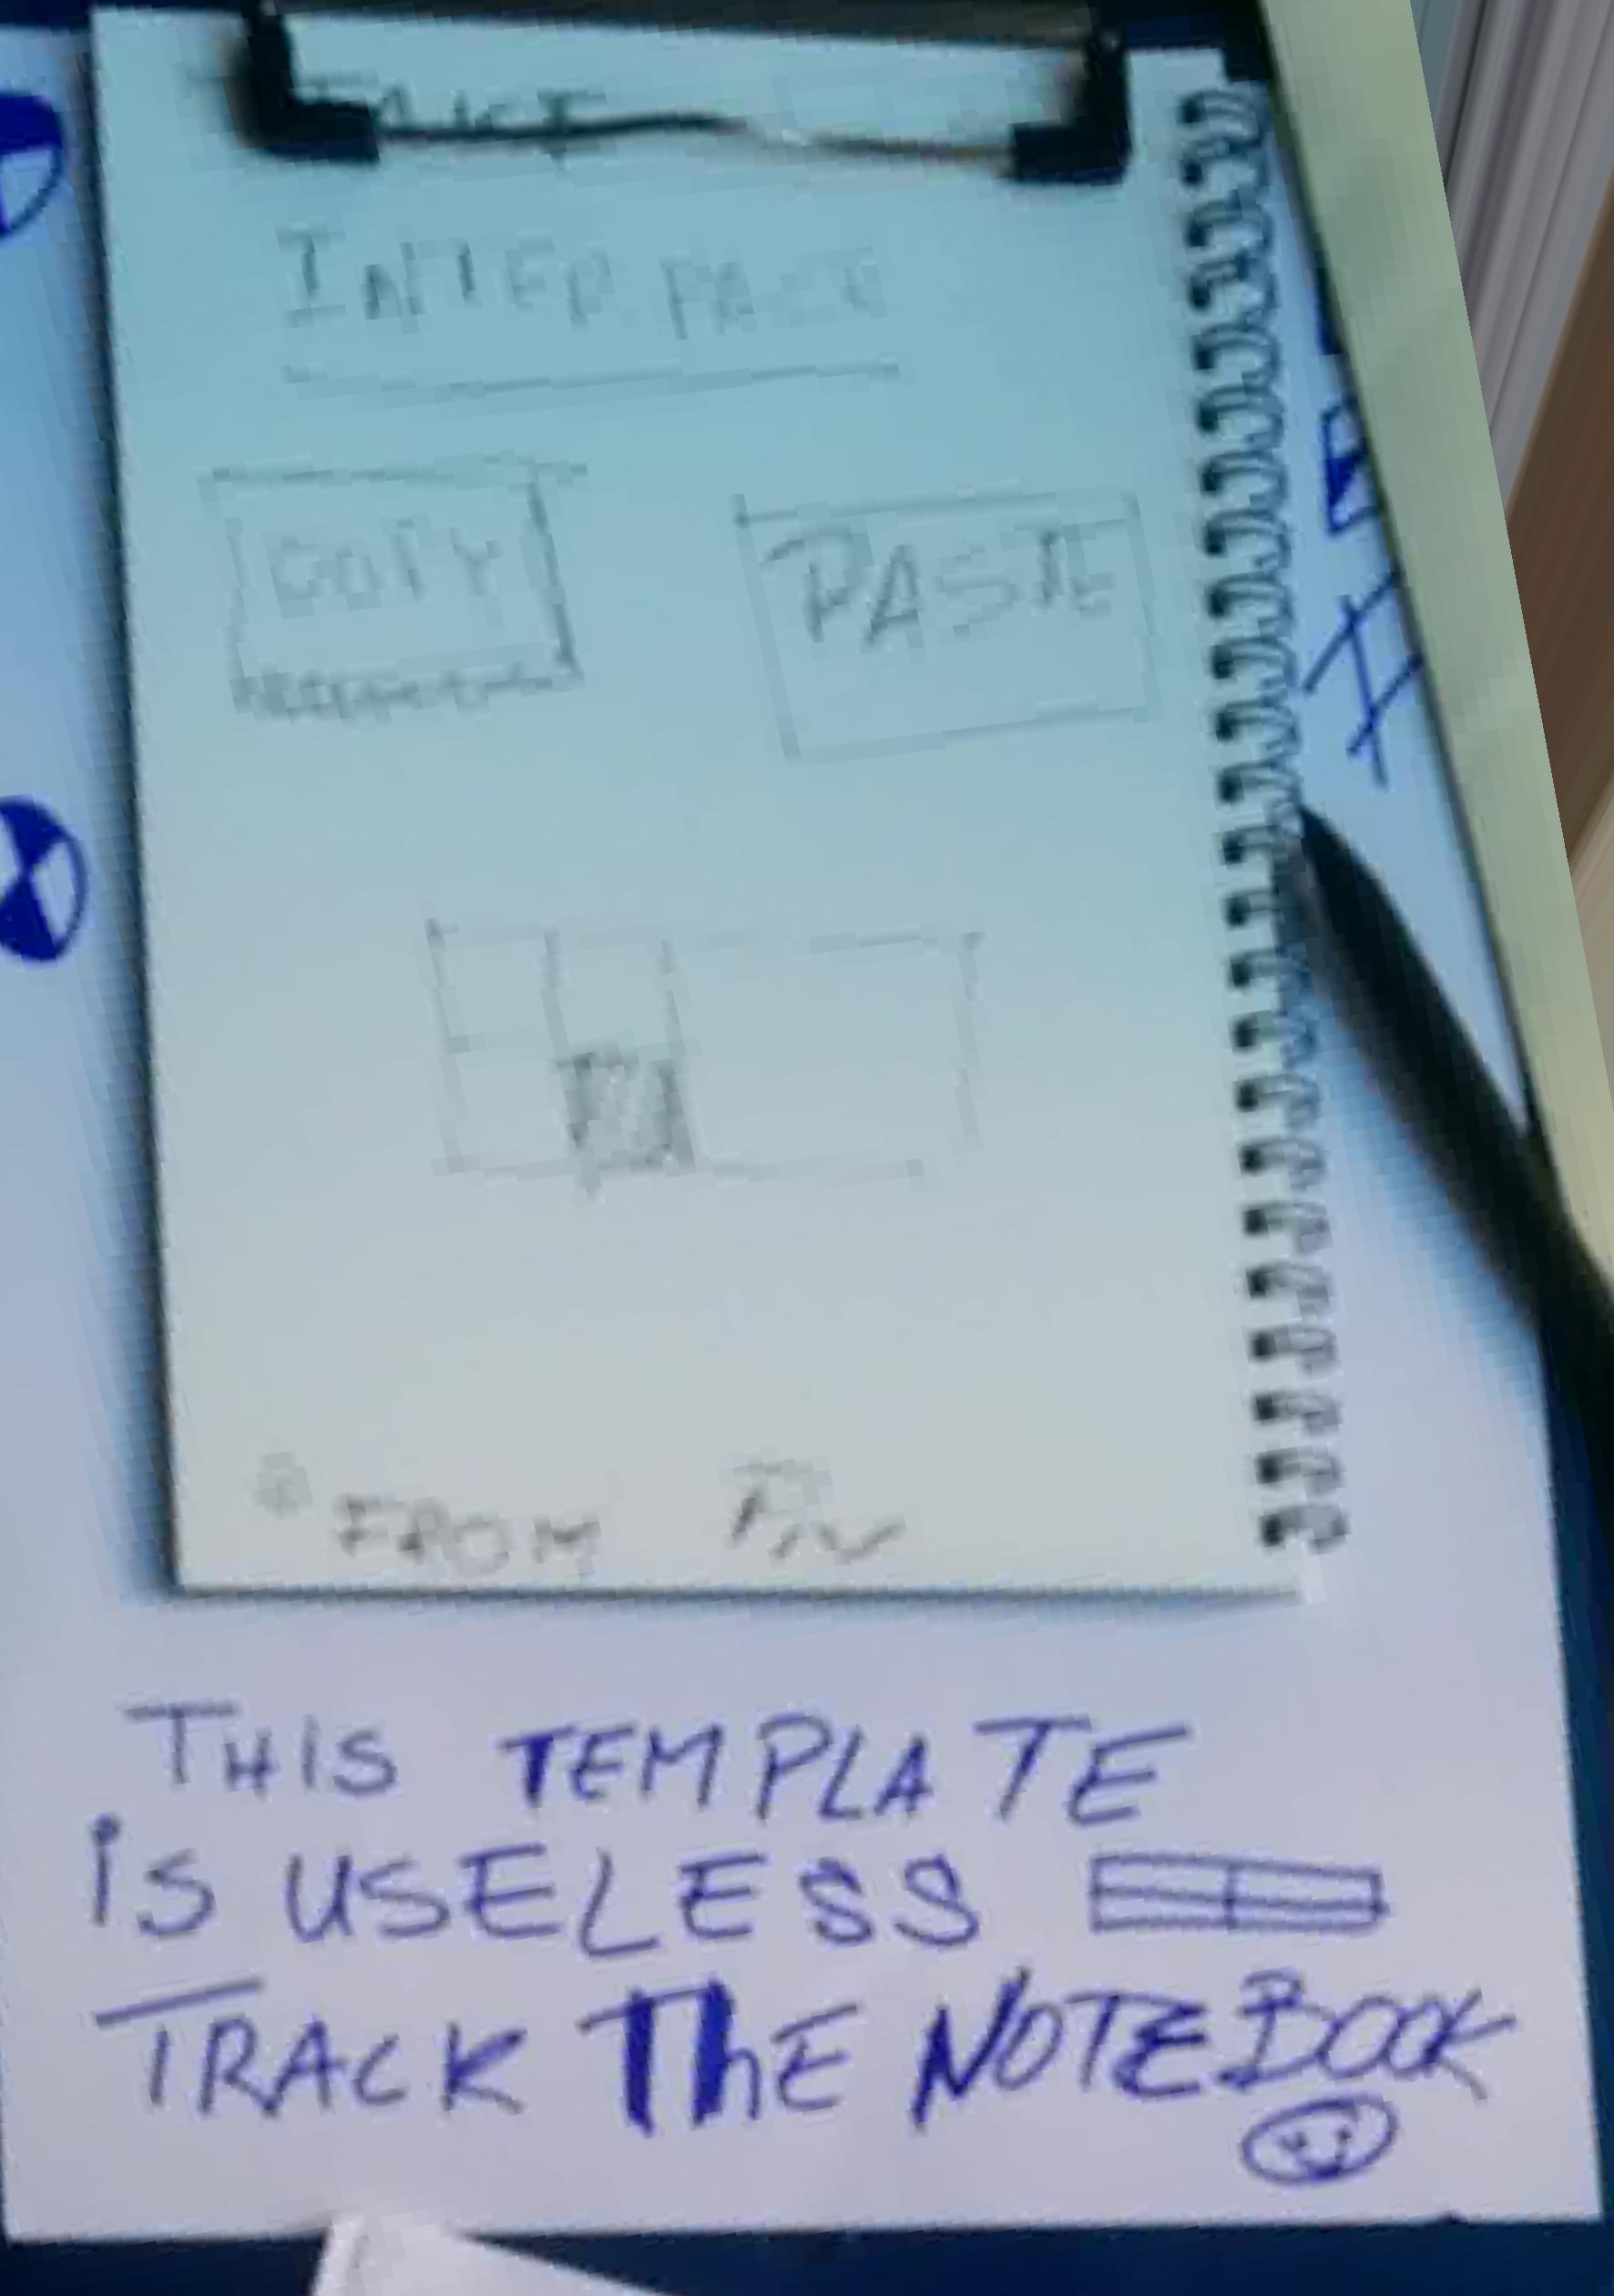 INTERFACE
COPY
PASTE
FROM
THIS TEMPLATE
IS USELESS
TRACK ThE NOTEBOOK